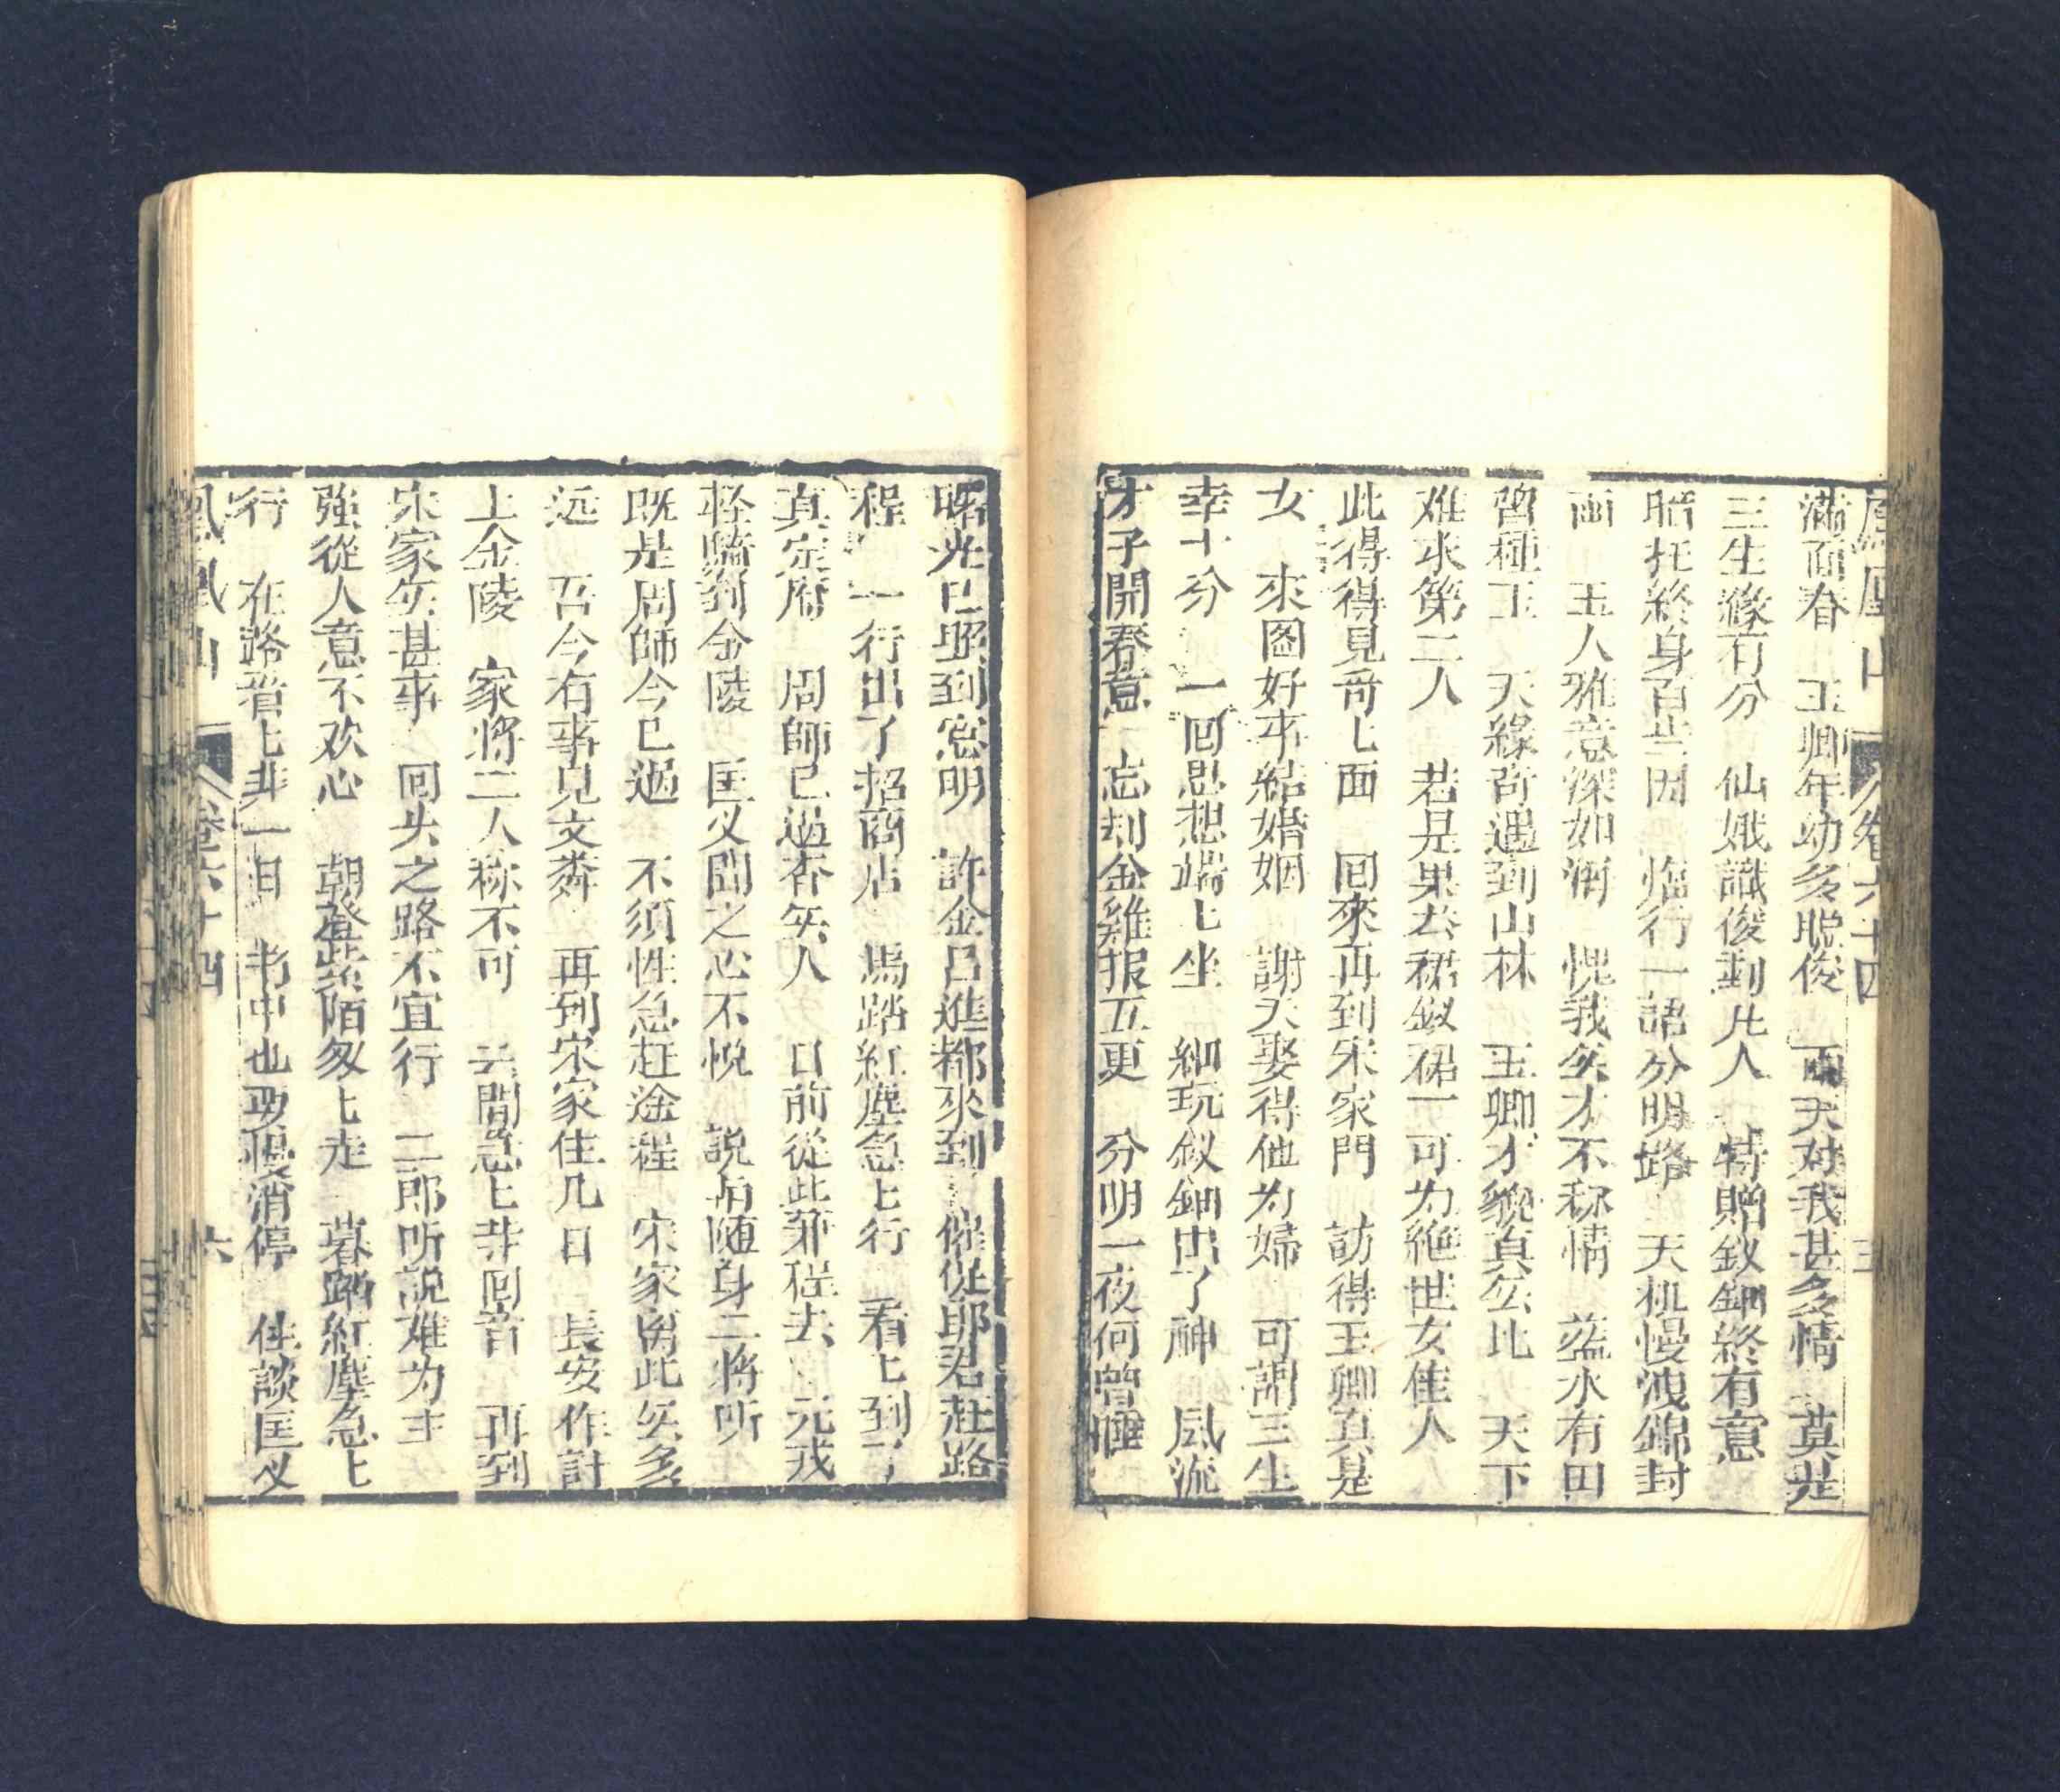 鳳凰山 卷六十四 五
滿面春 玉卿年幼多聰俊 兩天对我甚多情 莫非
三生緣有分 仙娥識俊到凡人 特贈釵鈿終有意
暗托終身百岁因 临行一語分明路 天机慢洩錦封
函 玉人雅意深如海 愧我矣才不称情 蓝水有田
曾種玉 天緣奇遇到山林 玉卿才貌真公比 天下
难求第二人 若是果去裙釵裙 一可为絶世女佳人
此得得見奇匕面 回來再到宋家門 訪得玉卿真是
女 來圖好事結婚姻 謝天娶得他为婦 可謂三生
幸十分 一回思想端匕坐 細玩釵鈿出了神 风流
才子開春意 忘却金雞报五更 分明一夜何曾睡
曙光已照到窓明 許金吕進都來到 催促郎君赶路
程 一行出了招商店 馬踏紅塵急匕行 看匕到了
真定府 周師已過杳矣人 日前從此荣程去 元戎
轻騎到金陵 匡义聞之心不悦 説与随身二將听
既是周師今已過 不須性急赶途程 宋家离此矣多
远 吾今有事見文粦 再到宋家住几日 長安作討
上金陵 家將二人称不可 公間急匕非回音 再到
宋家矣甚事 回头之路不宜行 二郎听説难为主
強從人意不欢心 朝登紫陌匆匕走 暮踏紅塵急匕
行 在路首匕非一日 书中也要慢消停 住談匡义
鳳凰山 卷六十四 六